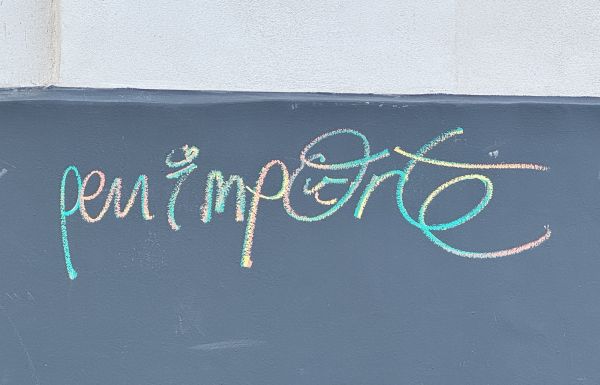 peu importe